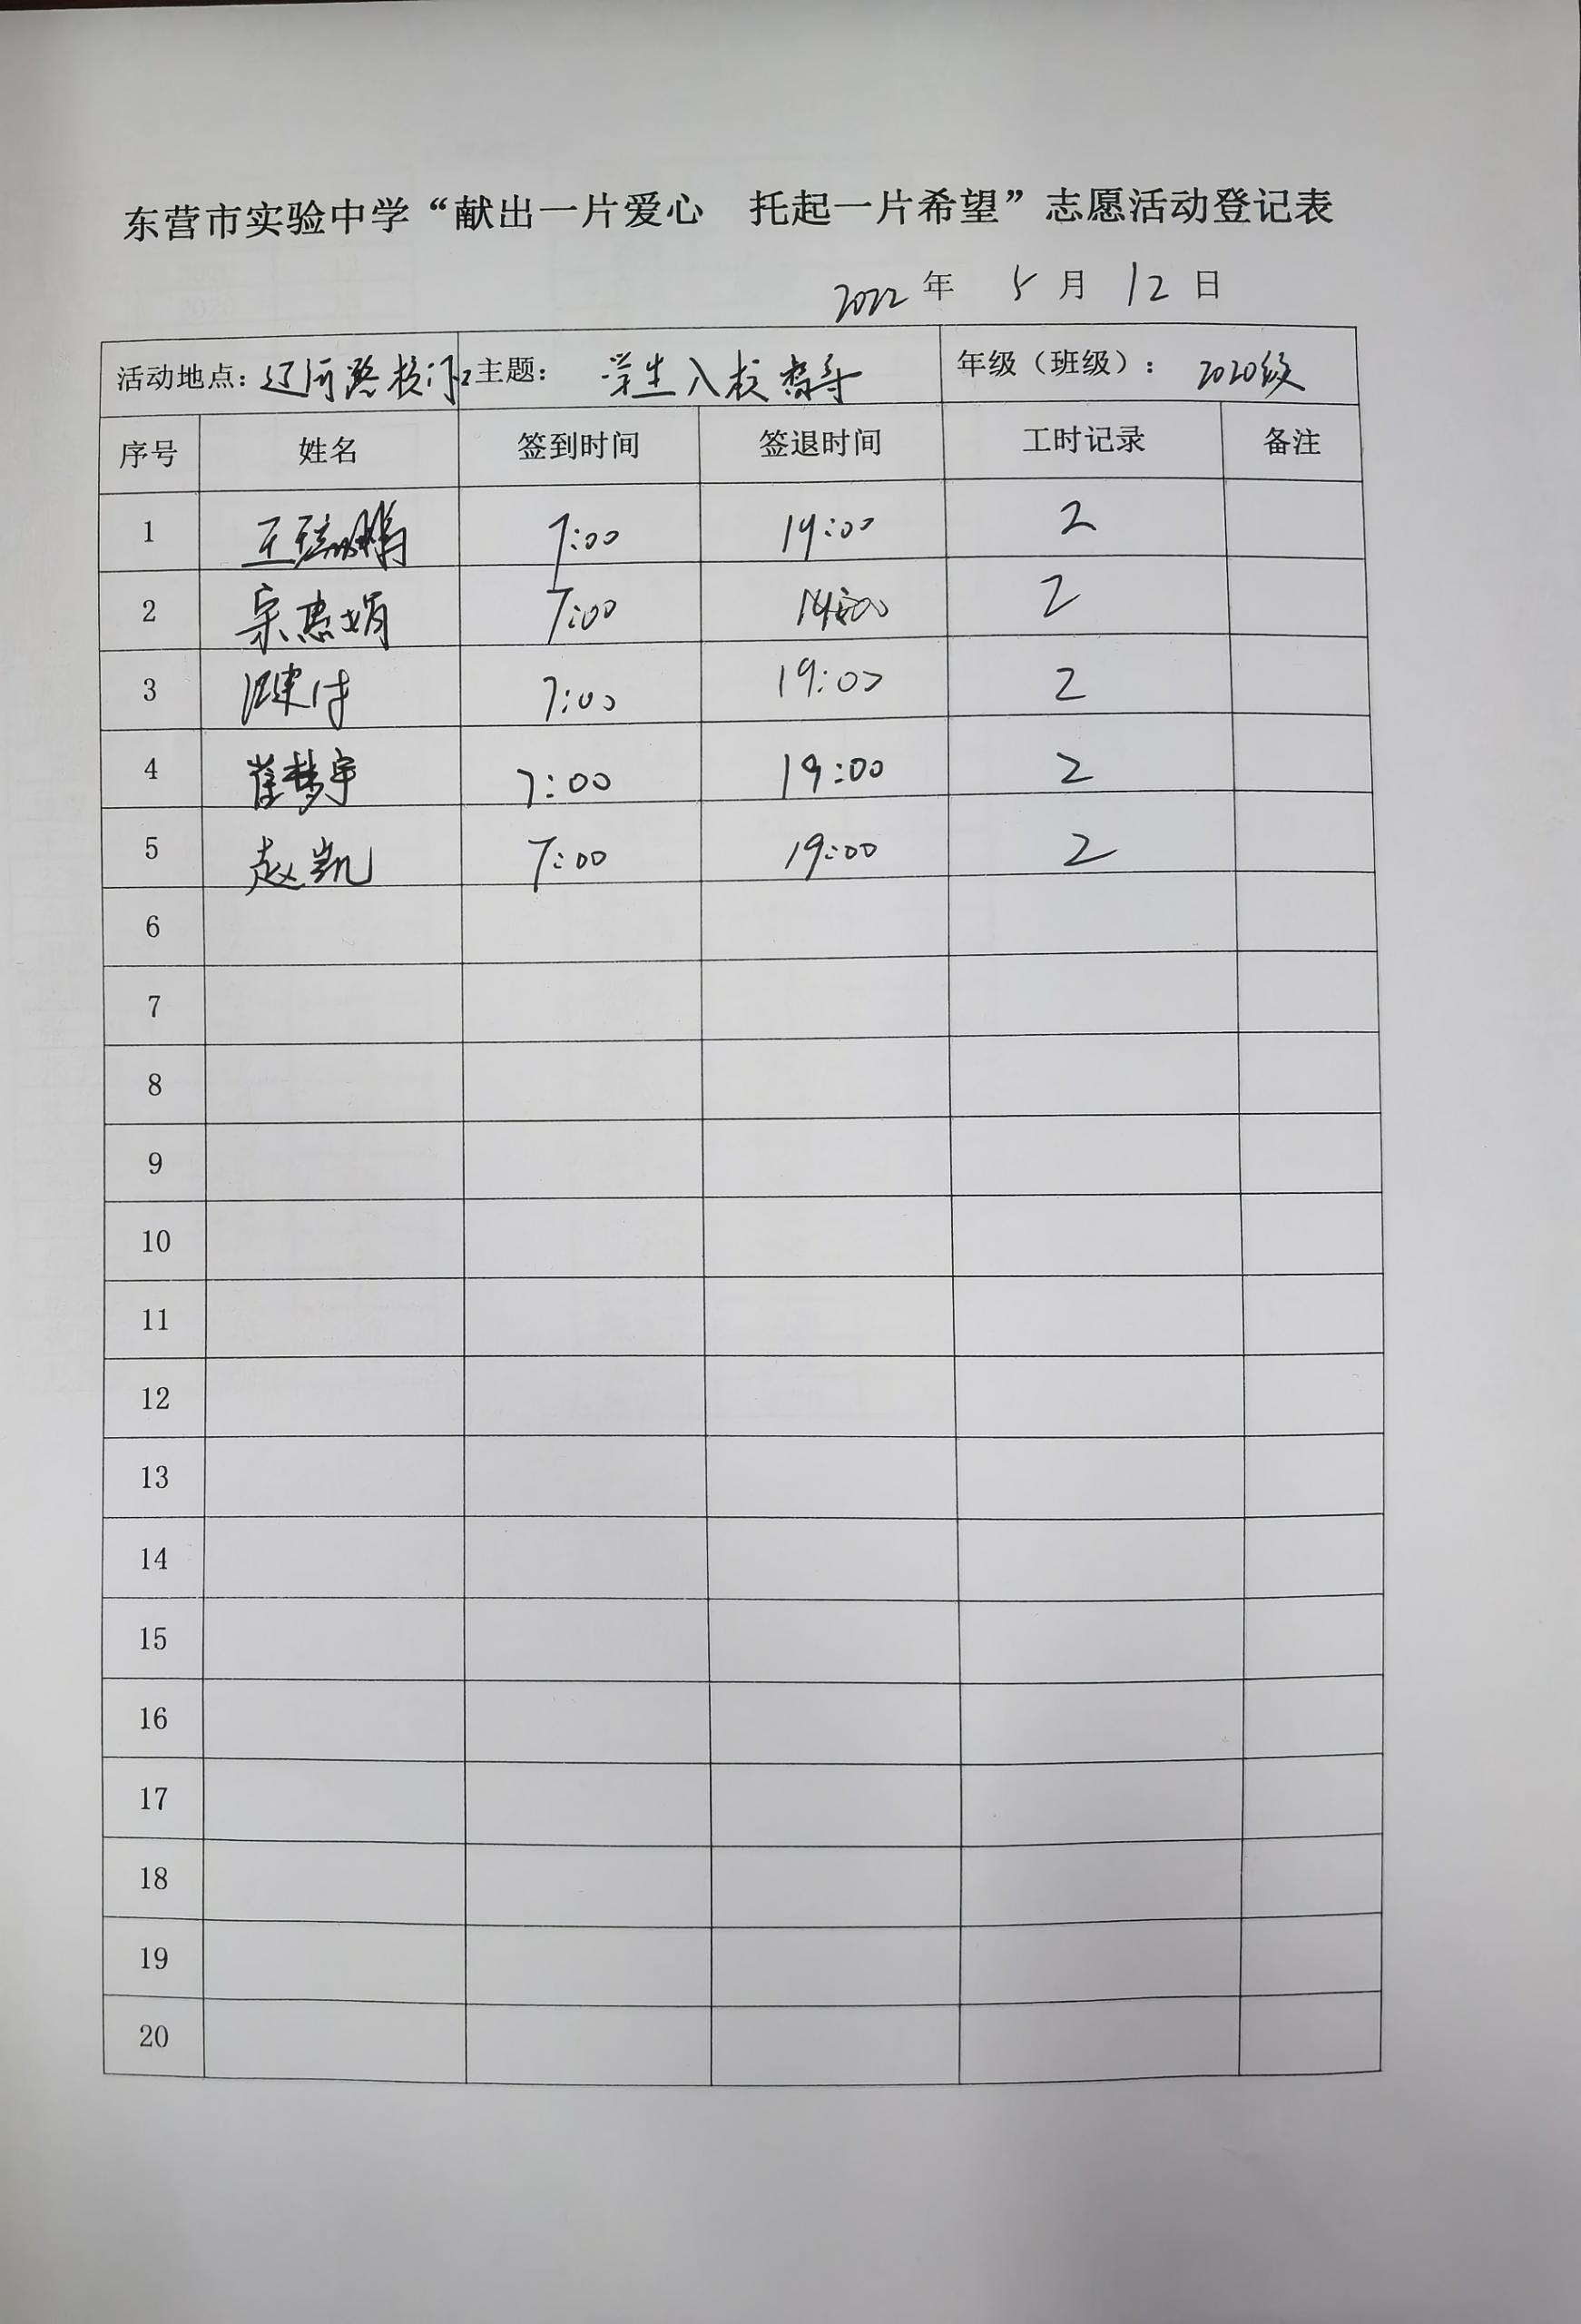 东营市实验中学“献出一片爱心 托起一片希望”志愿活动登记表
2022 年 5 月 12 日
活动地点：辽河路校门口 主题： 学生入校督导 年级（班级）： 2020级
序号 姓名 签到时间 签退时间 工时记录 备注
1 王 鹏 7:00 19:00 2
2 宋惠娟 7:00 2
3 陈 7:00 19:00 2
4 崔梦宇 7:00 19:00 2
5 赵凯 7:00 19:00 2
6
7
8
9
10
11
12
13
14
15
16
17
18
19
20